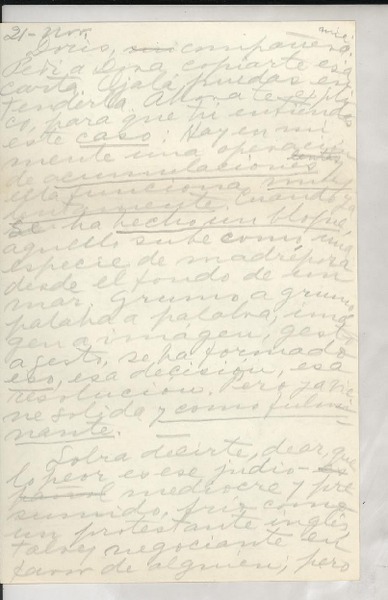 21-Nov.
Doris, mi compañera:
Pedí a Dora copiarte esa
carta. Ojalá puedas en-
tenderla. Ahora te expli-
co, para que tú entiendas
este caso: Hay en mi
mente una operación
de cumulaciones lentas y
ella funciona muy
lentamente. Cuando ya
se ha hecho un bloque,
aquello sube como una
especie de madrépora
desde el fondo de un
mar. Grumo a grumo,
palabra a palabra, ima-
gen a imágen, gesto
a gesto, se ha formado
eso, esa decisión, esa
resolución. Pero ya vie-
ne sólida y como fulmi-
nante. —
Sobra decirte, dear, que
lo peor es ese judío-
mediocre y pre-
sumido, friz como
un protestante inglés,
talvez negociante en
favor de alguien; pero